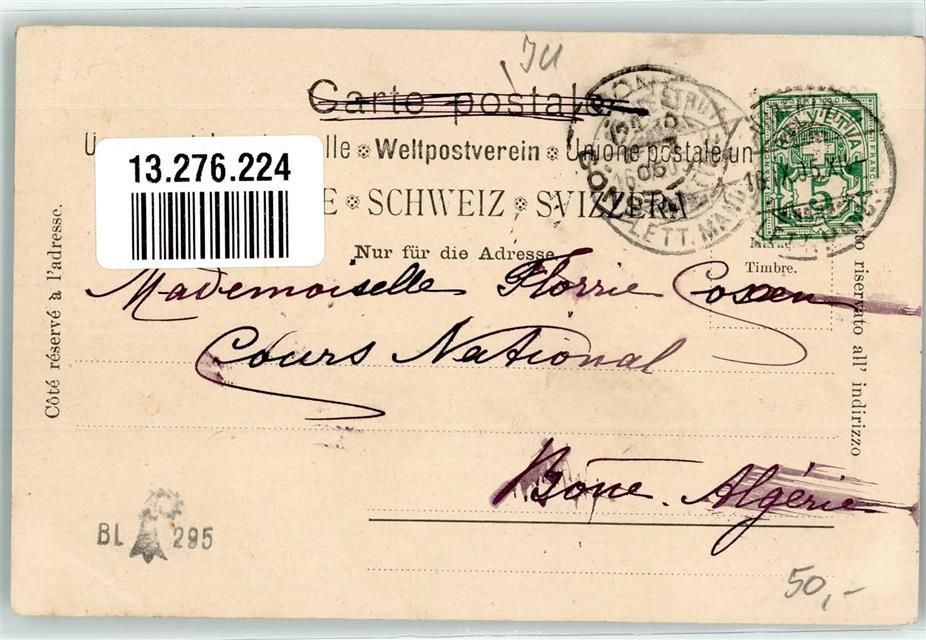 Carte postale
lle ❉ Weltpostverein ❉ Unione postale un
E ❉ SCHWEIZ ❉ SVIZZERA
13.276.224
Nur für die Adresse.
Côté réservé à l'adresse.
Timbre.
riservato all' indirizzo
HELVETIA
FRANCO
5
LETT. MAND.
Mademoiselle Florrie Coxen
Cours National
Bône. Algérie
BL 295
50,-